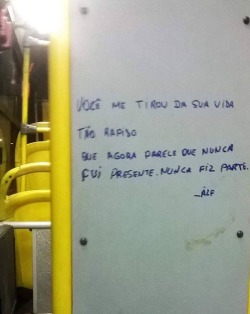 VOCÊ ME TIROU DA SUA VIDA
TÃO RAPIDO
QUE AGORA PARECE QUE NUNCA
FUI PRESENTE. NUNCA FIZ PARTE.